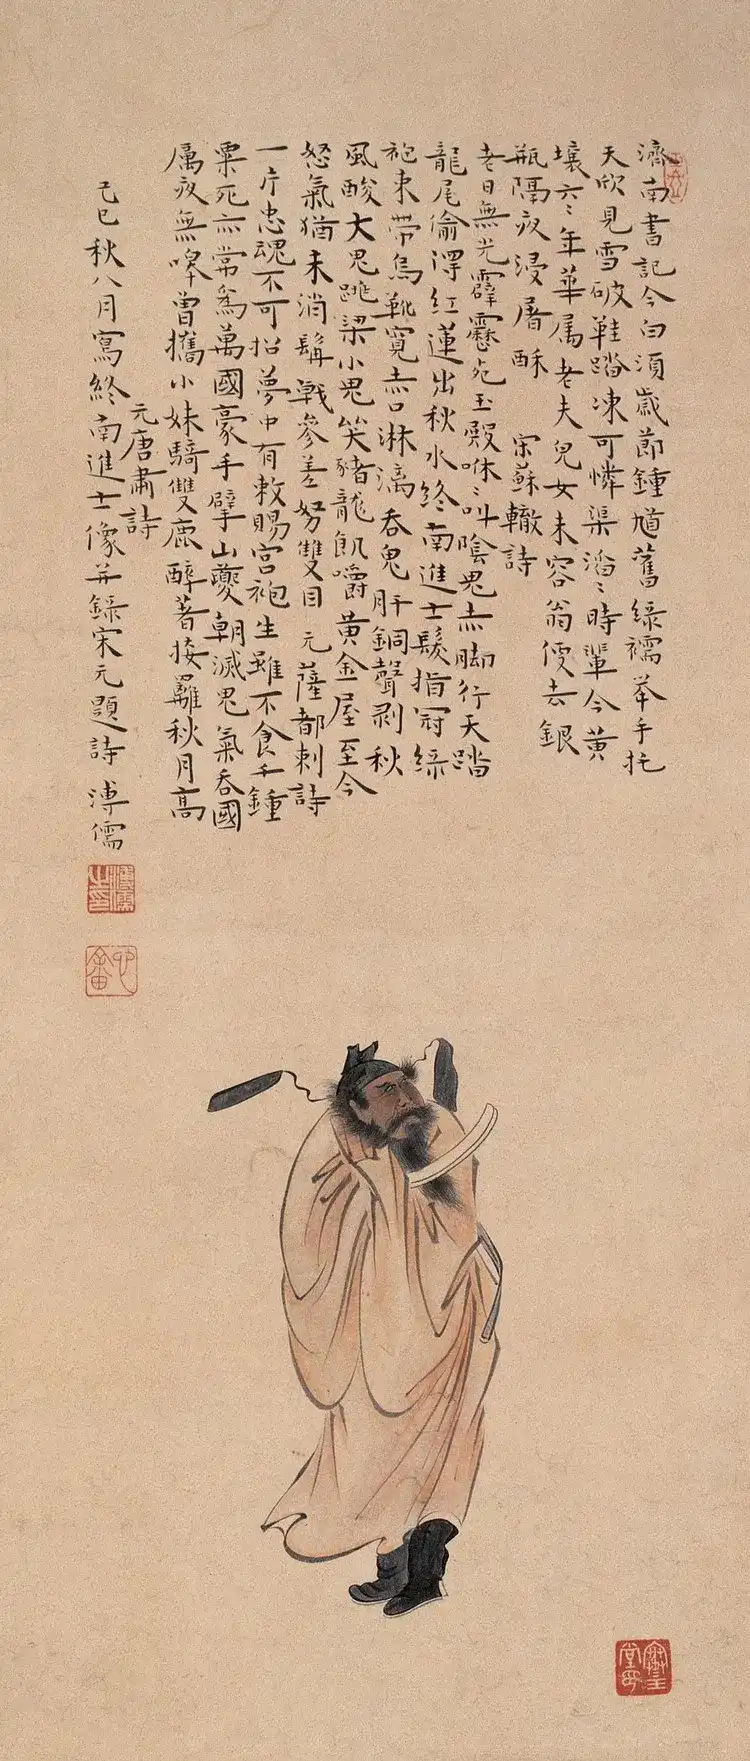 濟南書記今白須歲節鍾馗舊綠襦舉手托
天欣見雪破鞋踏凍可憐渠滔〻時輩今黃
壤六〻年華属老夫兒女未容翁便去銀
瓶隔夜浸屠酥 宋蘇轍詩
老日無光霹靂死玉殿咻〻叫陰鬼赤脚行天踏
龍尾偷得紅蓮出秋水終南進士髮指冠綠
袍束帶烏靴寬赤口淋漓吞鬼肝銅聲剥秋
風酸大鬼跳梁小鬼笑豬龍飢嚼黃金屋至今
怒氣猶未消髯戟參差努雙目 元薩都剌詩
一片忠魂不可招夢中有敕賜宮袍生雖不食千鍾
粟死亦當為萬國豪手擘山夔朝滅鬼氣吞國
厲夜無嘷曾攜小妹騎雙鹿醉著接䍦秋月高
元唐肅詩
己巳秋八月寫終南進士像并錄宋元題詩 溥儒
溥儒之印
心畬
寒玉堂印